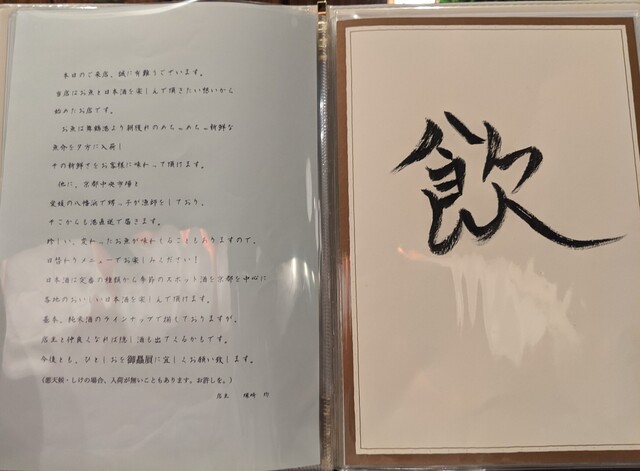 本日のご来店、誠に有難うございます。
当店はお魚と日本酒を楽しんで頂きたい想いから
始めたお店です。
お魚は舞鶴港より朝獲れのめちゃめちゃ新鮮な
魚介を夕方に入荷!
その新鮮さをお客様に味わって頂けます。
他に、京都中央市場と
愛媛の八幡浜で甥っ子が漁師をしており、
そこからも港直送で届きます。
珍しい、変わったお魚が味わえることもありますので、
日替わりメニューでお楽しみください!
日本酒は定番の種類から季節のスポット酒を京都を中心に
各地のおいしい日本酒を楽しんで頂けます。
基本、純米酒のラインナップで揃しておりますが、
店主と仲良くなれば隠し酒も出てくるかもです。
今後とも、ひとしおを御贔屓に宜しくお願い致します。
(悪天候・しけの場合、入荷が無いこともあります。お許しを。)
店主
飲